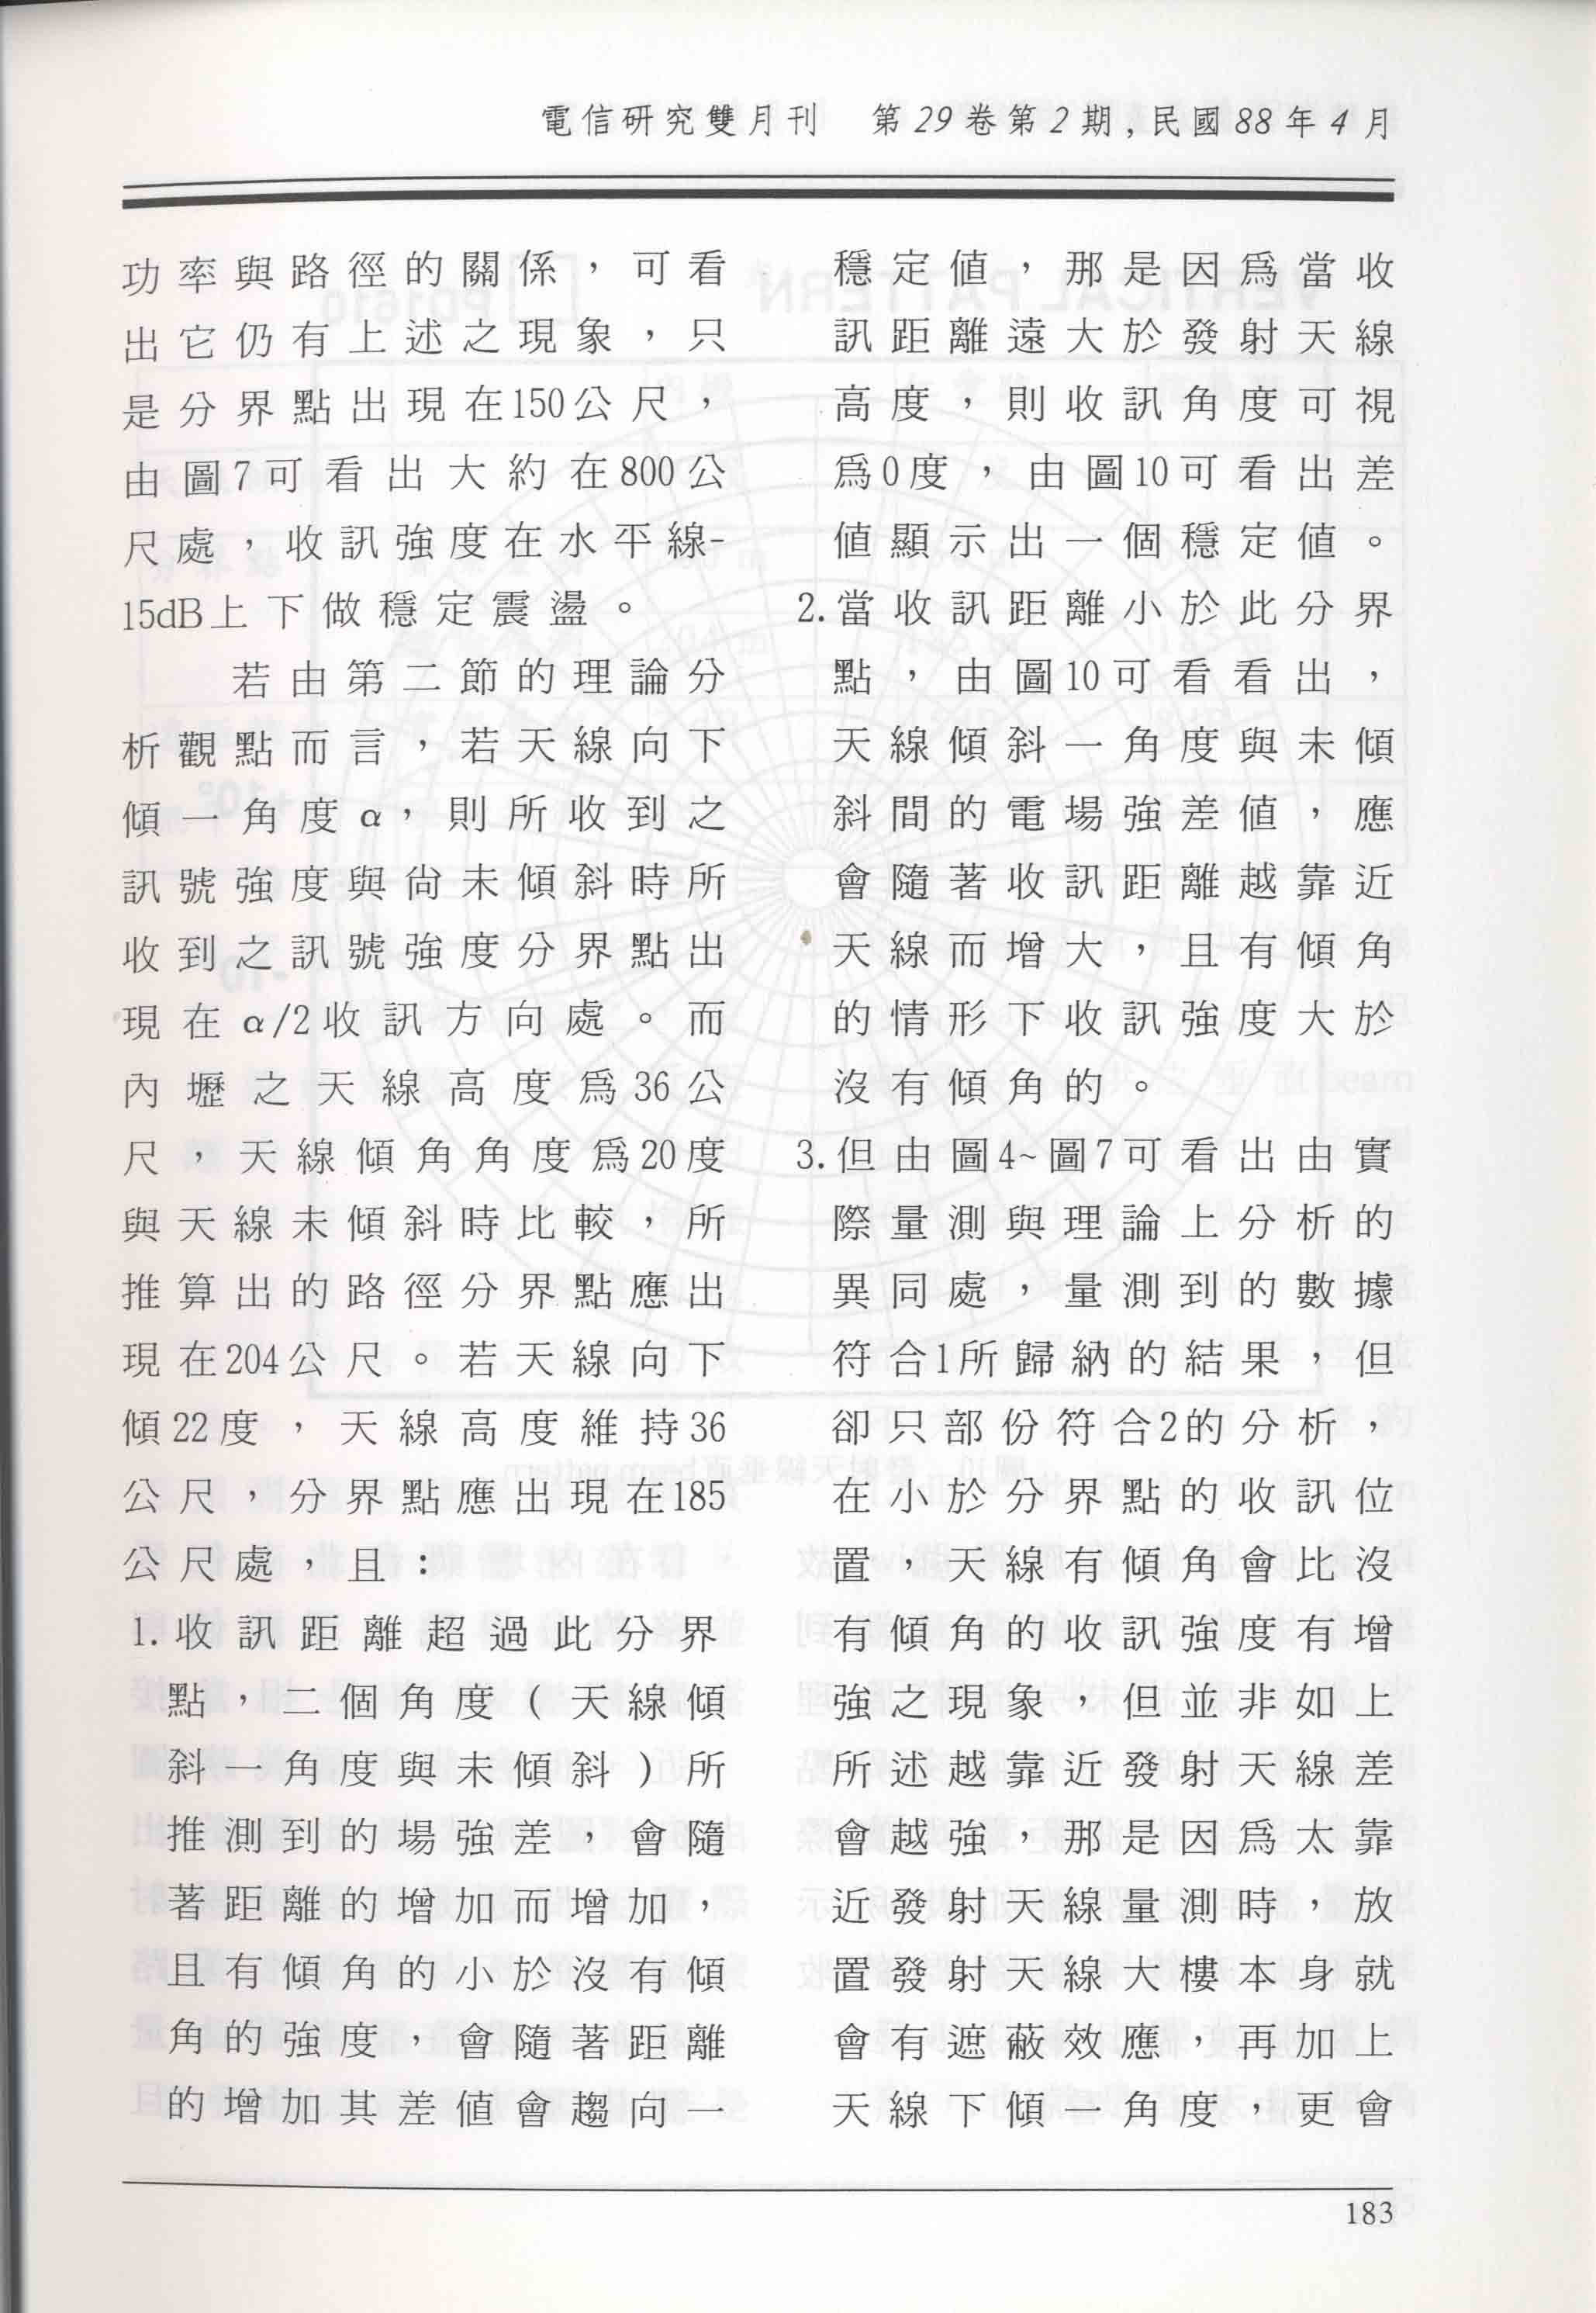 電信研究雙月刊　第29卷第2期,民國88年4月
功率與路徑的關係，可看
出它仍有上述之現象，只
是分界點出現在150公尺，
由圖7可看出大約在800公
尺處，收訊強度在水平線-
15dB上下做穩定震盪。
若由第二節的理論分
析觀點而言，若天線向下
傾一角度α，則所收到之
訊號強度與尚未傾斜時所
收到之訊號強度分界點出
現在α/2收訊方向處。而
內壢之天線高度為36公
尺，天線傾角角度為20度
與天線未傾斜時比較，所
推算出的路徑分界點應出
現在204公尺。若天線向下
傾22度，天線高度維持36
公尺，分界點應出現在185
公尺處，且：
1.收訊距離超過此分界
點，二個角度(天線傾
斜一角度與未傾斜)所
推測到的場強差，會隨
著距離的增加而增加，
且有傾角的小於沒有傾
角的強度，會隨著距離
的增加其差值會趨向一
穩定值，那是因為當收
訊距離遠大於發射天線
高度，則收訊角度可視
為0度，由圖10可看出差
值顯示出一個穩定值。
2.當收訊距離小於此分界
點，由圖10可看看出，
天線傾斜一角度與未傾
斜間的電場強差值，應
會隨著收訊距離越靠近
天線而增大，且有傾角
的情形下收訊強度大於
沒有傾角的。
3.但由圖4~圖7可看出由實
際量測與理論上分析的
異同處，量測到的數據
符合1所歸納的結果，但
卻只部份符合2的分析，
在小於分界點的收訊位
置，天線有傾角會比沒
有傾角的收訊強度有增
強之現象，但並非如上
所述越靠近發射天線差
會越強，那是因為太靠
近發射天線量測時，放
置發射天線大樓本身就
會有遮蔽效應，再加上
天線下傾一角度，更會
183